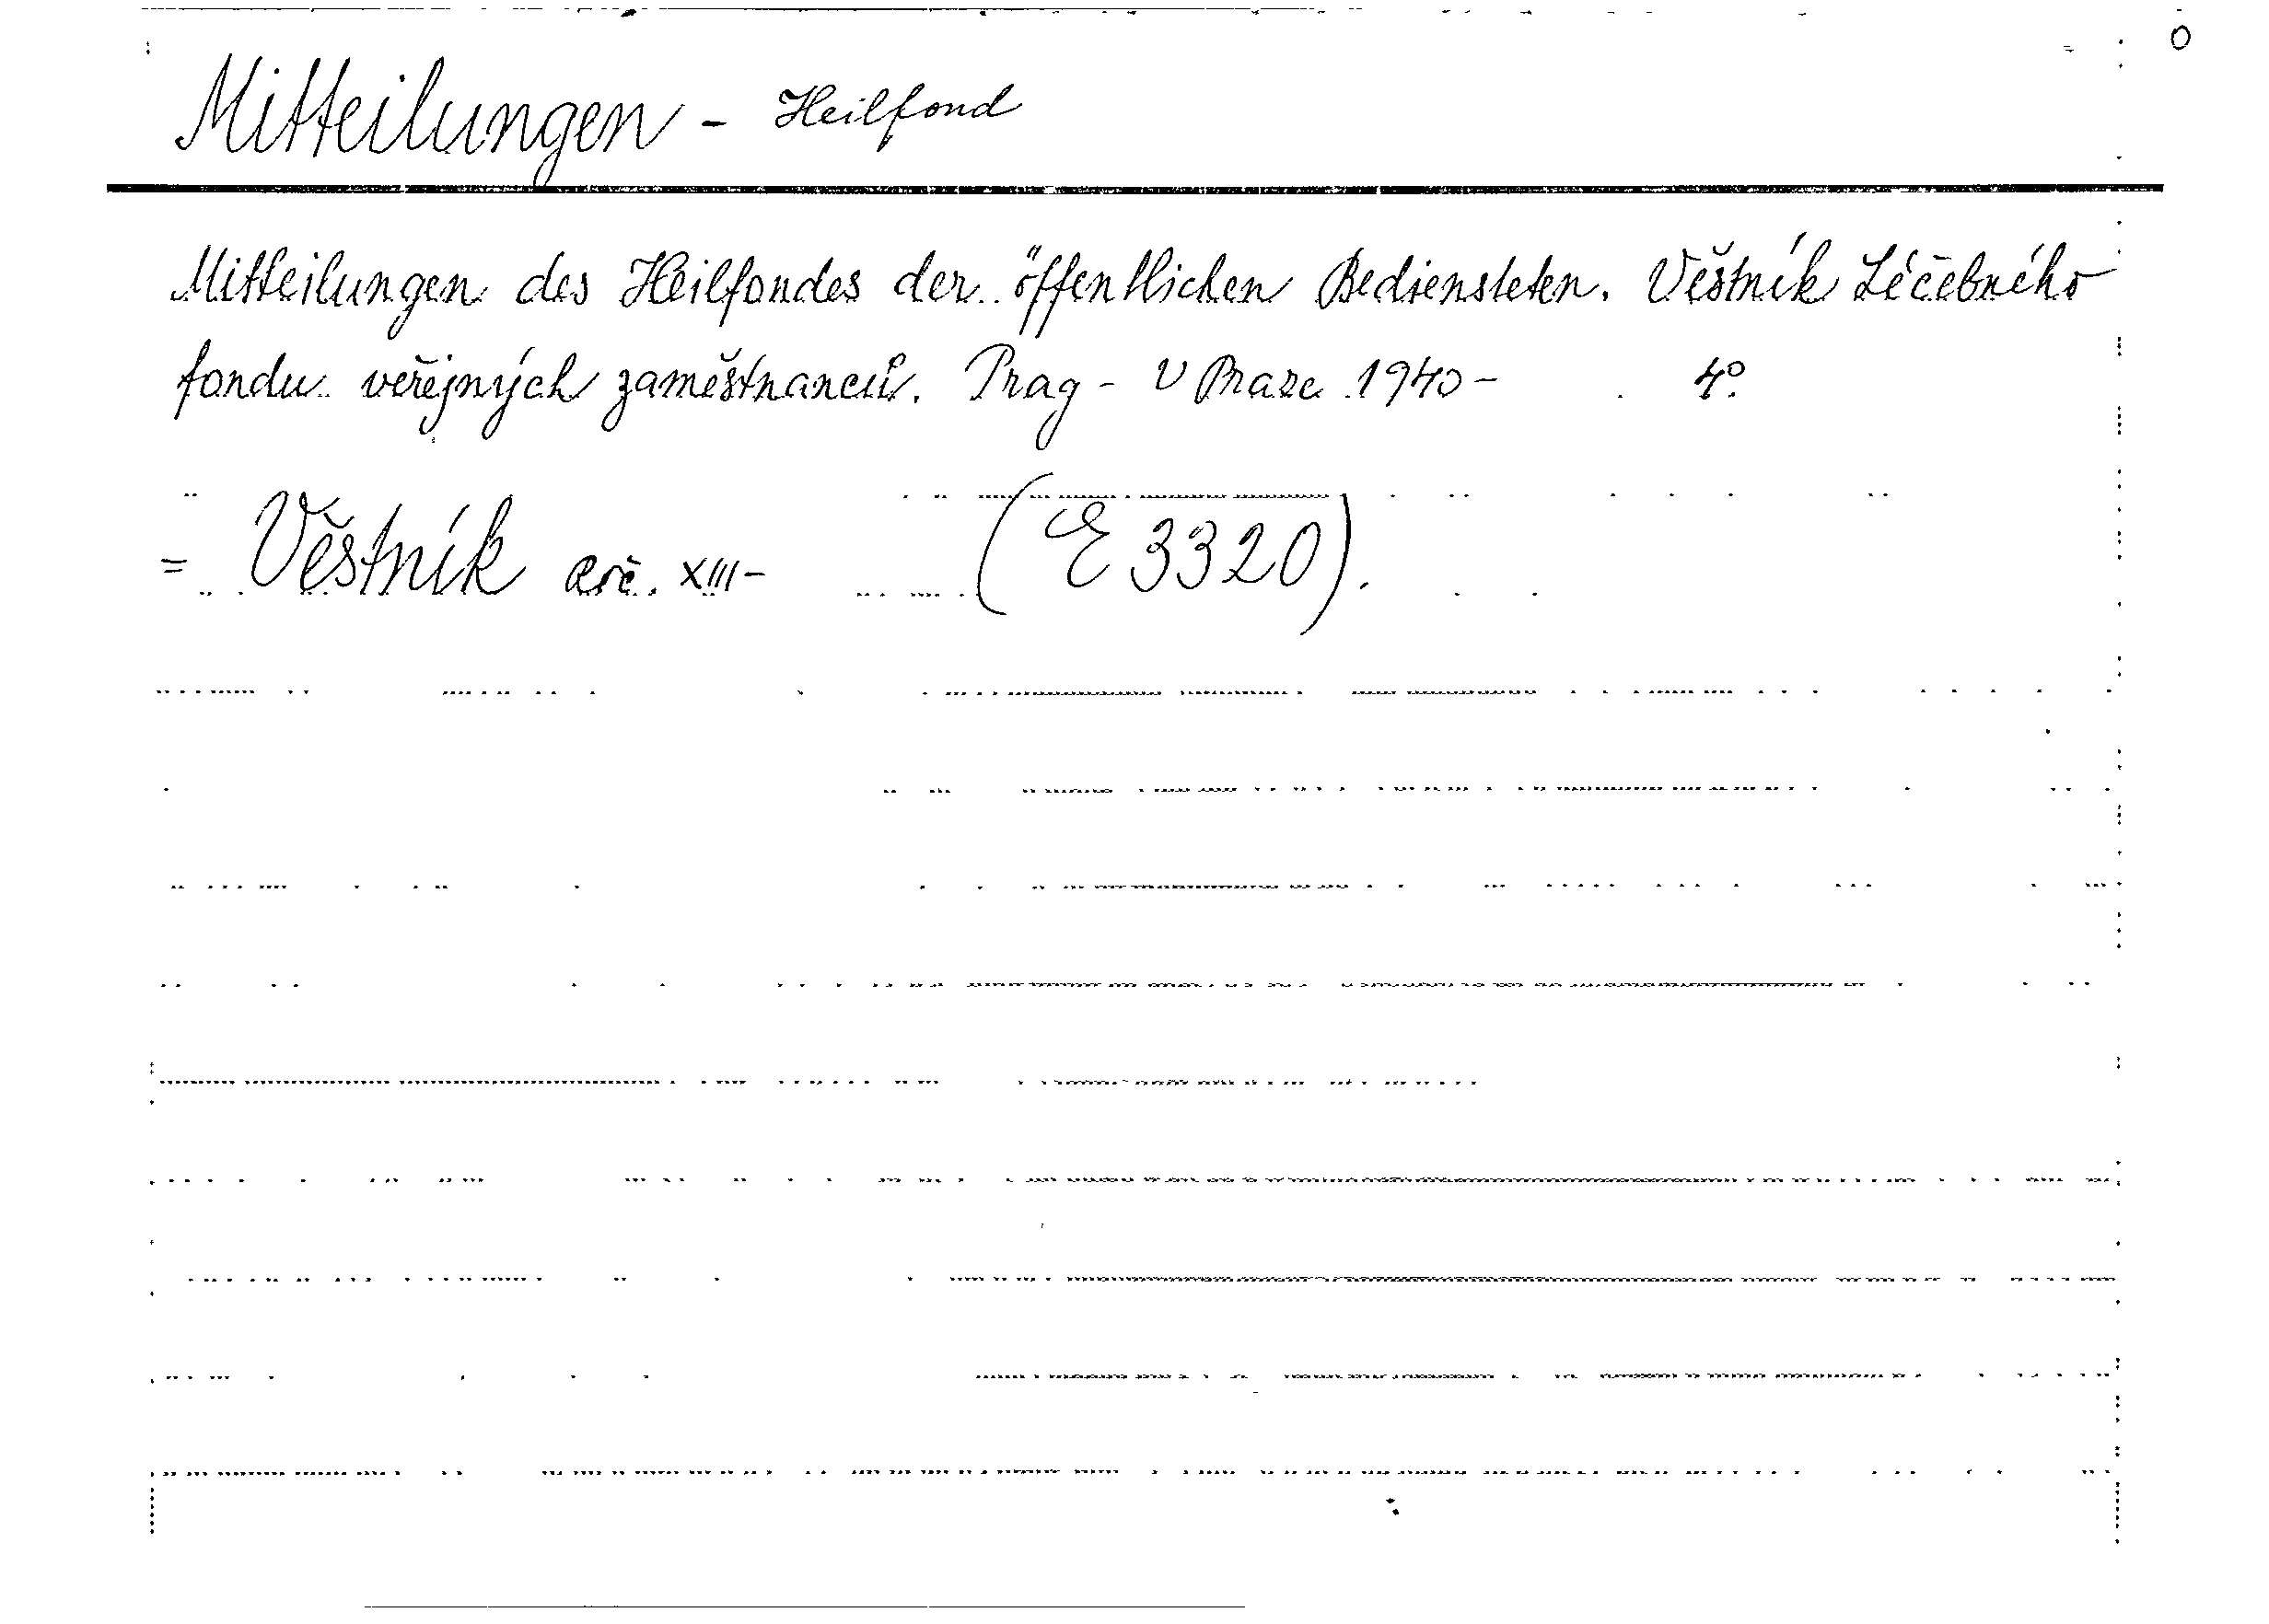 O
Mitteilungen - Heilfond
Mitteilungen des Heilfondes der öffentlichen Bediensteten. Věstník Léčebného
fondu veřejných zaměstnanců. Prag - V Praze 1940- 4°
= Věstník roč. XIII- (E 3320).